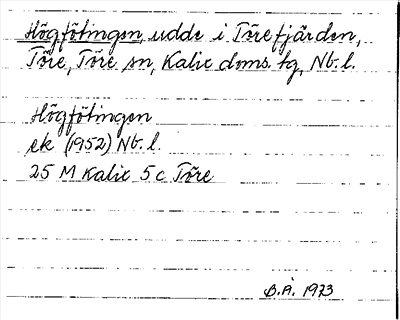 Högfötingen, udde i Törefjärden,
Töre, Töre sn, Kalix doms. tg, Nb. l.
Högfötingen
ek (1952) Nb. l.
25 M Kalix 5 c Töre
B.Å. 1973